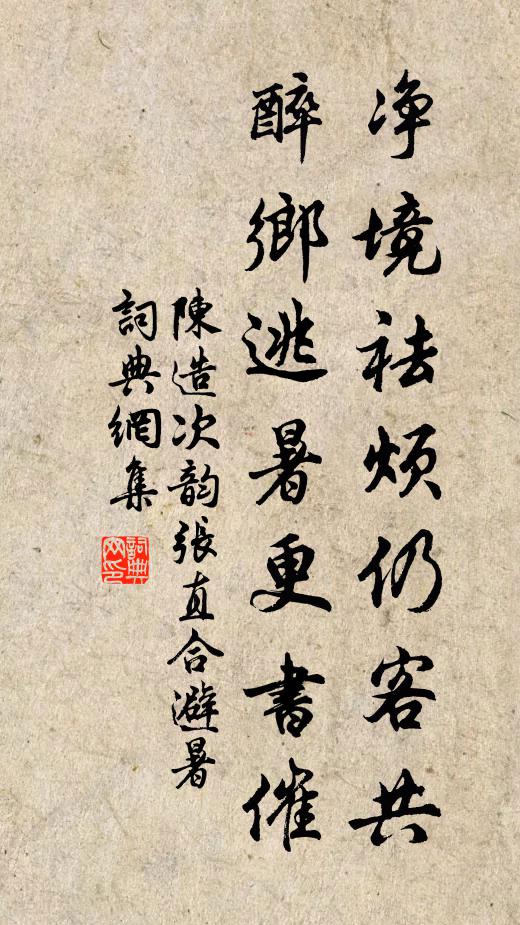 净境祛烦仍客共
醉鄉逃暑更書催
陳造次韵張直合避暑
詞典網集
詞典網印